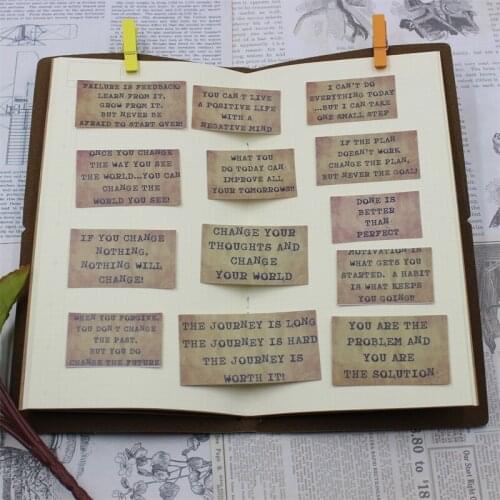 FAILURE IS FEEDBACK!
LEARN FROM IT.
GROW FROM IT.
BUT NEVER BE
AFRAID TO START OVER!
YOU CAN'T LIVE
A POSITIVE LIFE
WITH A
NEGATIVE MIND
I CAN'T DO
EVERYTHING TODAY
...BUT I CAN TAKE
ONE SMALL STEP
ONCE YOU CHANGE
THE WAY YOU SEE
THE WORLD...YOU CAN
CHANGE THE
WORLD YOU SEE!
WHAT YOU
DO TODAY CAN
IMPROVE ALL
YOUR TOMORROWS!!
IF THE PLAN
DOESN'T WORK
CHANGE THE PLAN,
BUT NEVER THE GOAL!
DONE IS
BETTER
THAN
PERFECT
IF YOU CHANGE
NOTHING,
NOTHING WILL
CHANGE!
CHANGE YOUR
THOUGHTS AND
CHANGE
YOUR WORLD
MOTIVATION IS
WHAT GETS YOU
STARTED. A HABIT
IS WHAT KEEPS
YOU GOING!!
WHEN YOU FORGIVE,
YOU DON'T CHANGE
THE PAST,
BUT YOU DO
CHANGE THE FUTURE
THE JOURNEY IS LONG
THE JOURNEY IS HARD
THE JOURNEY IS
WORTH IT!
YOU ARE THE
PROBLEM AND
YOU ARE
THE SOLUTION